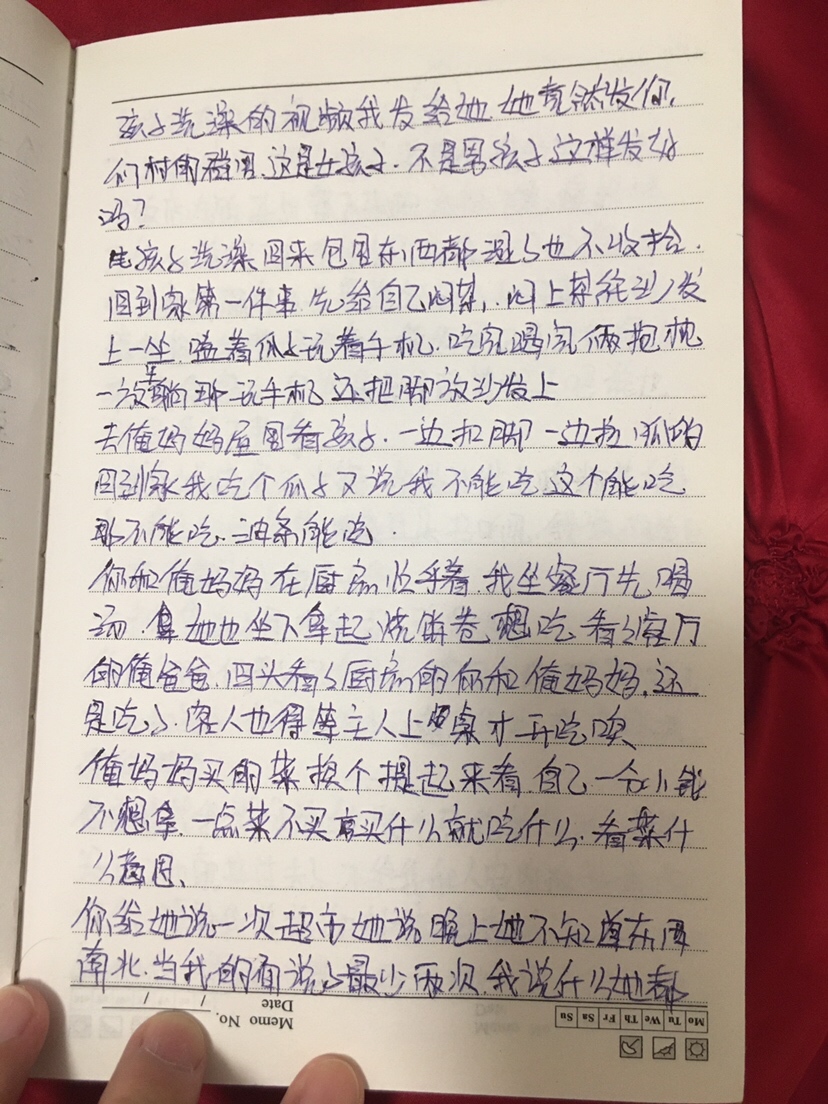 孩子洗澡的视频我发给她.她竟然发你
们村的群里.这是女孩子.不是男孩子这样发好
吗?
孩子洗澡回来包里东西都湿了也不收拾.
回到家第一件事.先给自己闷菜,闷上菜能沙发
上一坐.嗑着瓜子玩着手机.吃完喝完俩抱枕
一放躺那玩手机还把脚放沙发上
去俺妈妈屋里看孩子.一边扣脚一边
回到家我吃个瓜子又说我不能吃这个能吃
那不能吃.油条能吃.
你和俺妈妈在厨房忙乎着.我坐餐厅先喝
汤.她也坐下拿起烧饼卷想吃看了客厅
的俺爸爸.回头看了厨房的你和俺妈妈.还
是吃了.客人也得等主人上桌才开吃唉
俺妈妈买的菜挨个提起来看.自己一分小钱
不想拿.一点菜不买.买什么就吃什么.看菜什
么意思、
你给她说一次超市她说晚上她不知道东西
南北.当我的面说了最少两次.我说什么她都
Memo No.
Date / /
Mo Tu We Th Fr Sa Su